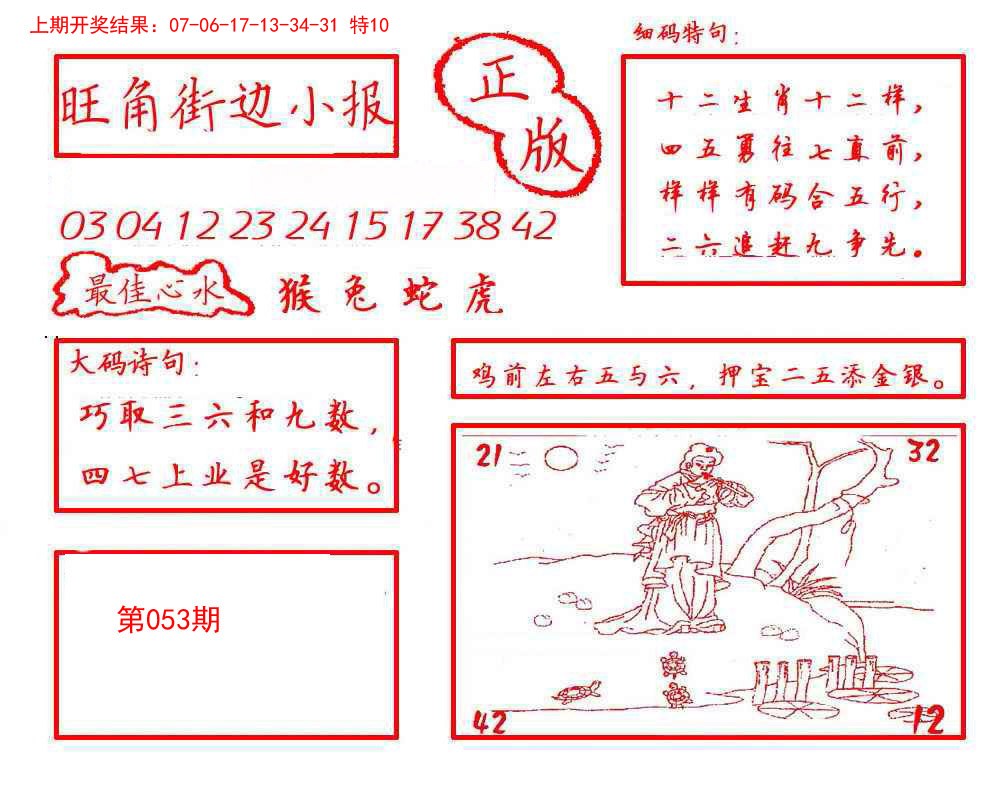 上期开奖结果：07-06-17-13-34-31 特10
旺角街边小报
正版
细码特句：
十二生肖十二样，
四五勇往七直前，
样样有码合五行，
二六追赶九争先。
03 04 12 23 24 15 17 38 42
最佳心水
猴兔蛇虎
大码诗句：
巧取三六和九数，
四七上业是好数。
鸡前左右五与六，押宝二五添金银。
21
32
42
12
第053期